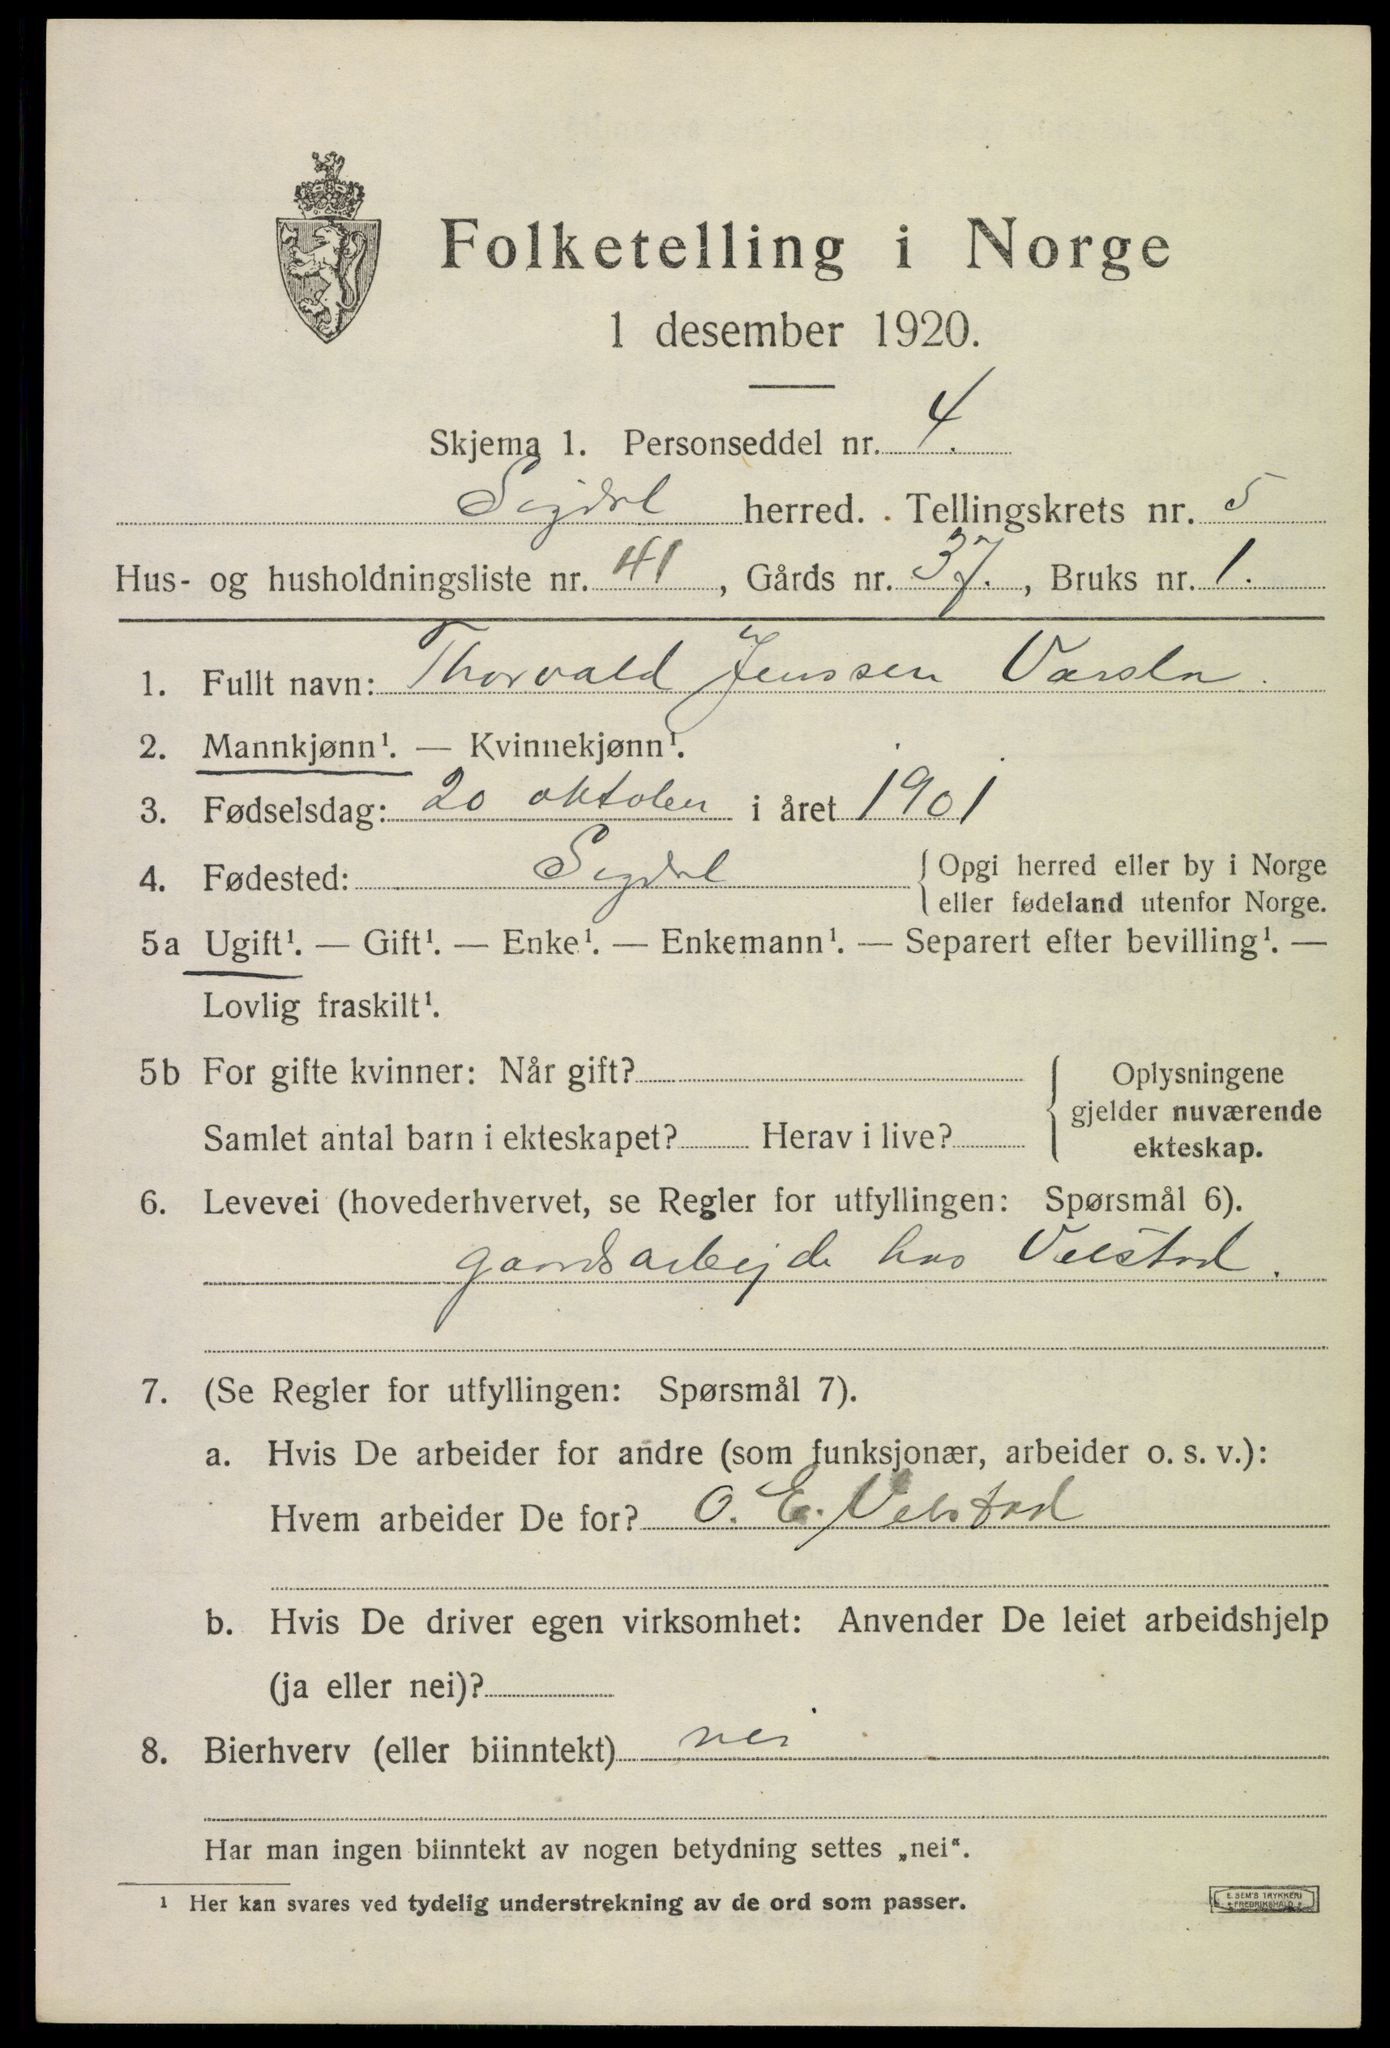 Folketelling i Norge
1 desember 1920.
Skjema 1. Personseddel nr. 4.
Sigdal herred. Tellingskrets nr. 5
Hus- og husholdningsliste nr. 41, Gårds nr. 37., Bruks nr. 1.
1. Fullt navn: Thorvald Jenssen
2. Mannkjønn¹. — Kvinnekjønn¹.
3. Fødselsdag: 20 oktober i året 1901
4. Fødested: Sigdal
{ Opgi herred eller by i Norge
eller fødeland utenfor Norge.
5a Ugift¹. — Gift¹. — Enke¹. — Enkemann¹. — Separert efter bevilling¹. —
Lovlig fraskilt¹.
5b For gifte kvinner: Når gift?
Samlet antal barn i ekteskapet? Herav i live?
{ Oplysningene
gjelder nuværende
ekteskap.
6. Levevei (hovederhvervet, se Regler for utfyllingen: Spørsmål 6).
gaardsarbejde hos Velstad.
7. (Se Regler for utfyllingen: Spørsmål 7).
a. Hvis De arbeider for andre (som funksjonær, arbeider o. s. v.):
Hvem arbeider De for? O. E. Velstad
b. Hvis De driver egen virksomhet: Anvender De leiet arbeidshjelp
(ja eller nei)?
8. Bierhverv (eller biinntekt) nei
Har man ingen biinntekt av nogen betydning settes „nei“.
¹ Her kan svares ved tydelig understrekning av de ord som passer.
E. SEM'S TRYKKERI
FREDRIKSHALD